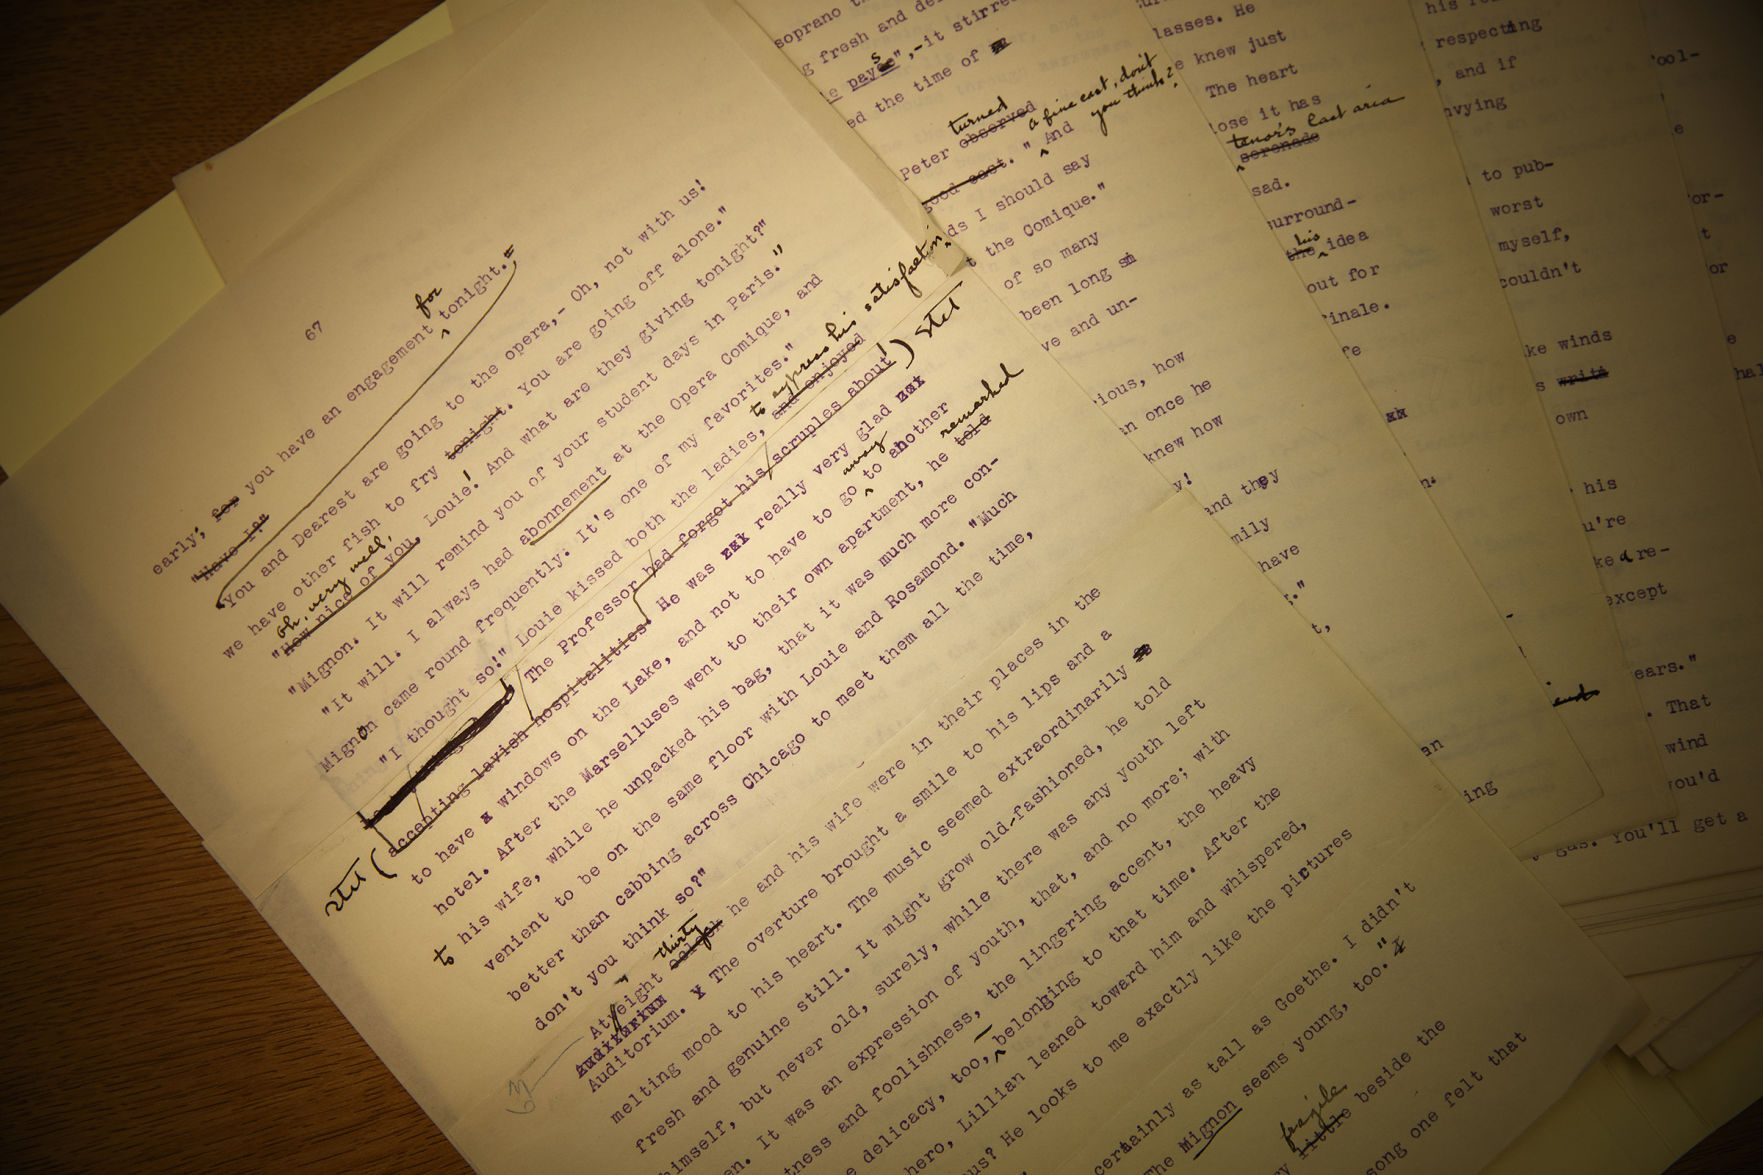 67
for
early; for you have an engagement tonight."
"Have I?"
"You and Dearest are going to the opera,- Oh, not with us!
we have other fish to fry tonight. You are going off alone."
oh, very well,
"How nice of you, Louie! And what are they giving tonight?"
"Mignon. It will remind you of your student days in Paris."
"It will. I always had abonnement at the Opera Comique, and
Mignon came round frequently. It's one of my favorites."
to express his satisfaction
"I thought so!" Louie kissed both the ladies, and enjoyed
The Professor had forgot his scruples about ) stet
stet ( accepting lavish hospitalities. He was really very glad
away
to have a windows on the Lake, and not to have to go to another
remarked
hotel. After the Marselluses went to their own apartment, he told
to his wife, while he unpacked his bag, that it was much more con-
venient to be on the same floor with Louie and Rosamond. "Much
better than cabbing across Chicago to meet them all the time,
don't you think so?"
thirty
At eight oclock he and his wife were in their places in the
Auditorium. The overture brought a smile to his lips and a
melting mood to his heart. The music seemed extraordinarily
fresh and genuine still. It might grow old-fashioned, he told
himself, but never old, surely, while there was any youth left
en. It was an expression of youth, that, and no more; with
tness and foolishness, the lingering accent, the heavy
delicacy, too, belonging to that time. After the
hero, Lillian leaned toward him and whispered,
us? He looks to me exactly like the pictures
certainly as tall as Goethe. I didn't
The Mignon seems young, too."
fragile
little beside the
song one felt that
63
soprano
fresh and
pays", -it stirre
ed the time of
turned
Peter observed
a fine cast, don't
you think?
good cast." And
ds I should say
t the Comique."
of so many
been long
ve and un-
ious, how
n once he
knew how
y!
and they
mily
have
."
t,
an
ing
lasses. He
e knew just
The heart
lose it has
tenor's last aria
serenade
sad.
surround-
his
the idea
out for
finale.
fe
xx
n.
his
respecting
, and if
nvying
to pub-
worst
myself,
couldn't
ke winds
s write
own
his
u're
ke a re-
except
ears."
. That
wind
you'd
gas. You'll get a
'ool-
e
or-
t
or
e
hal